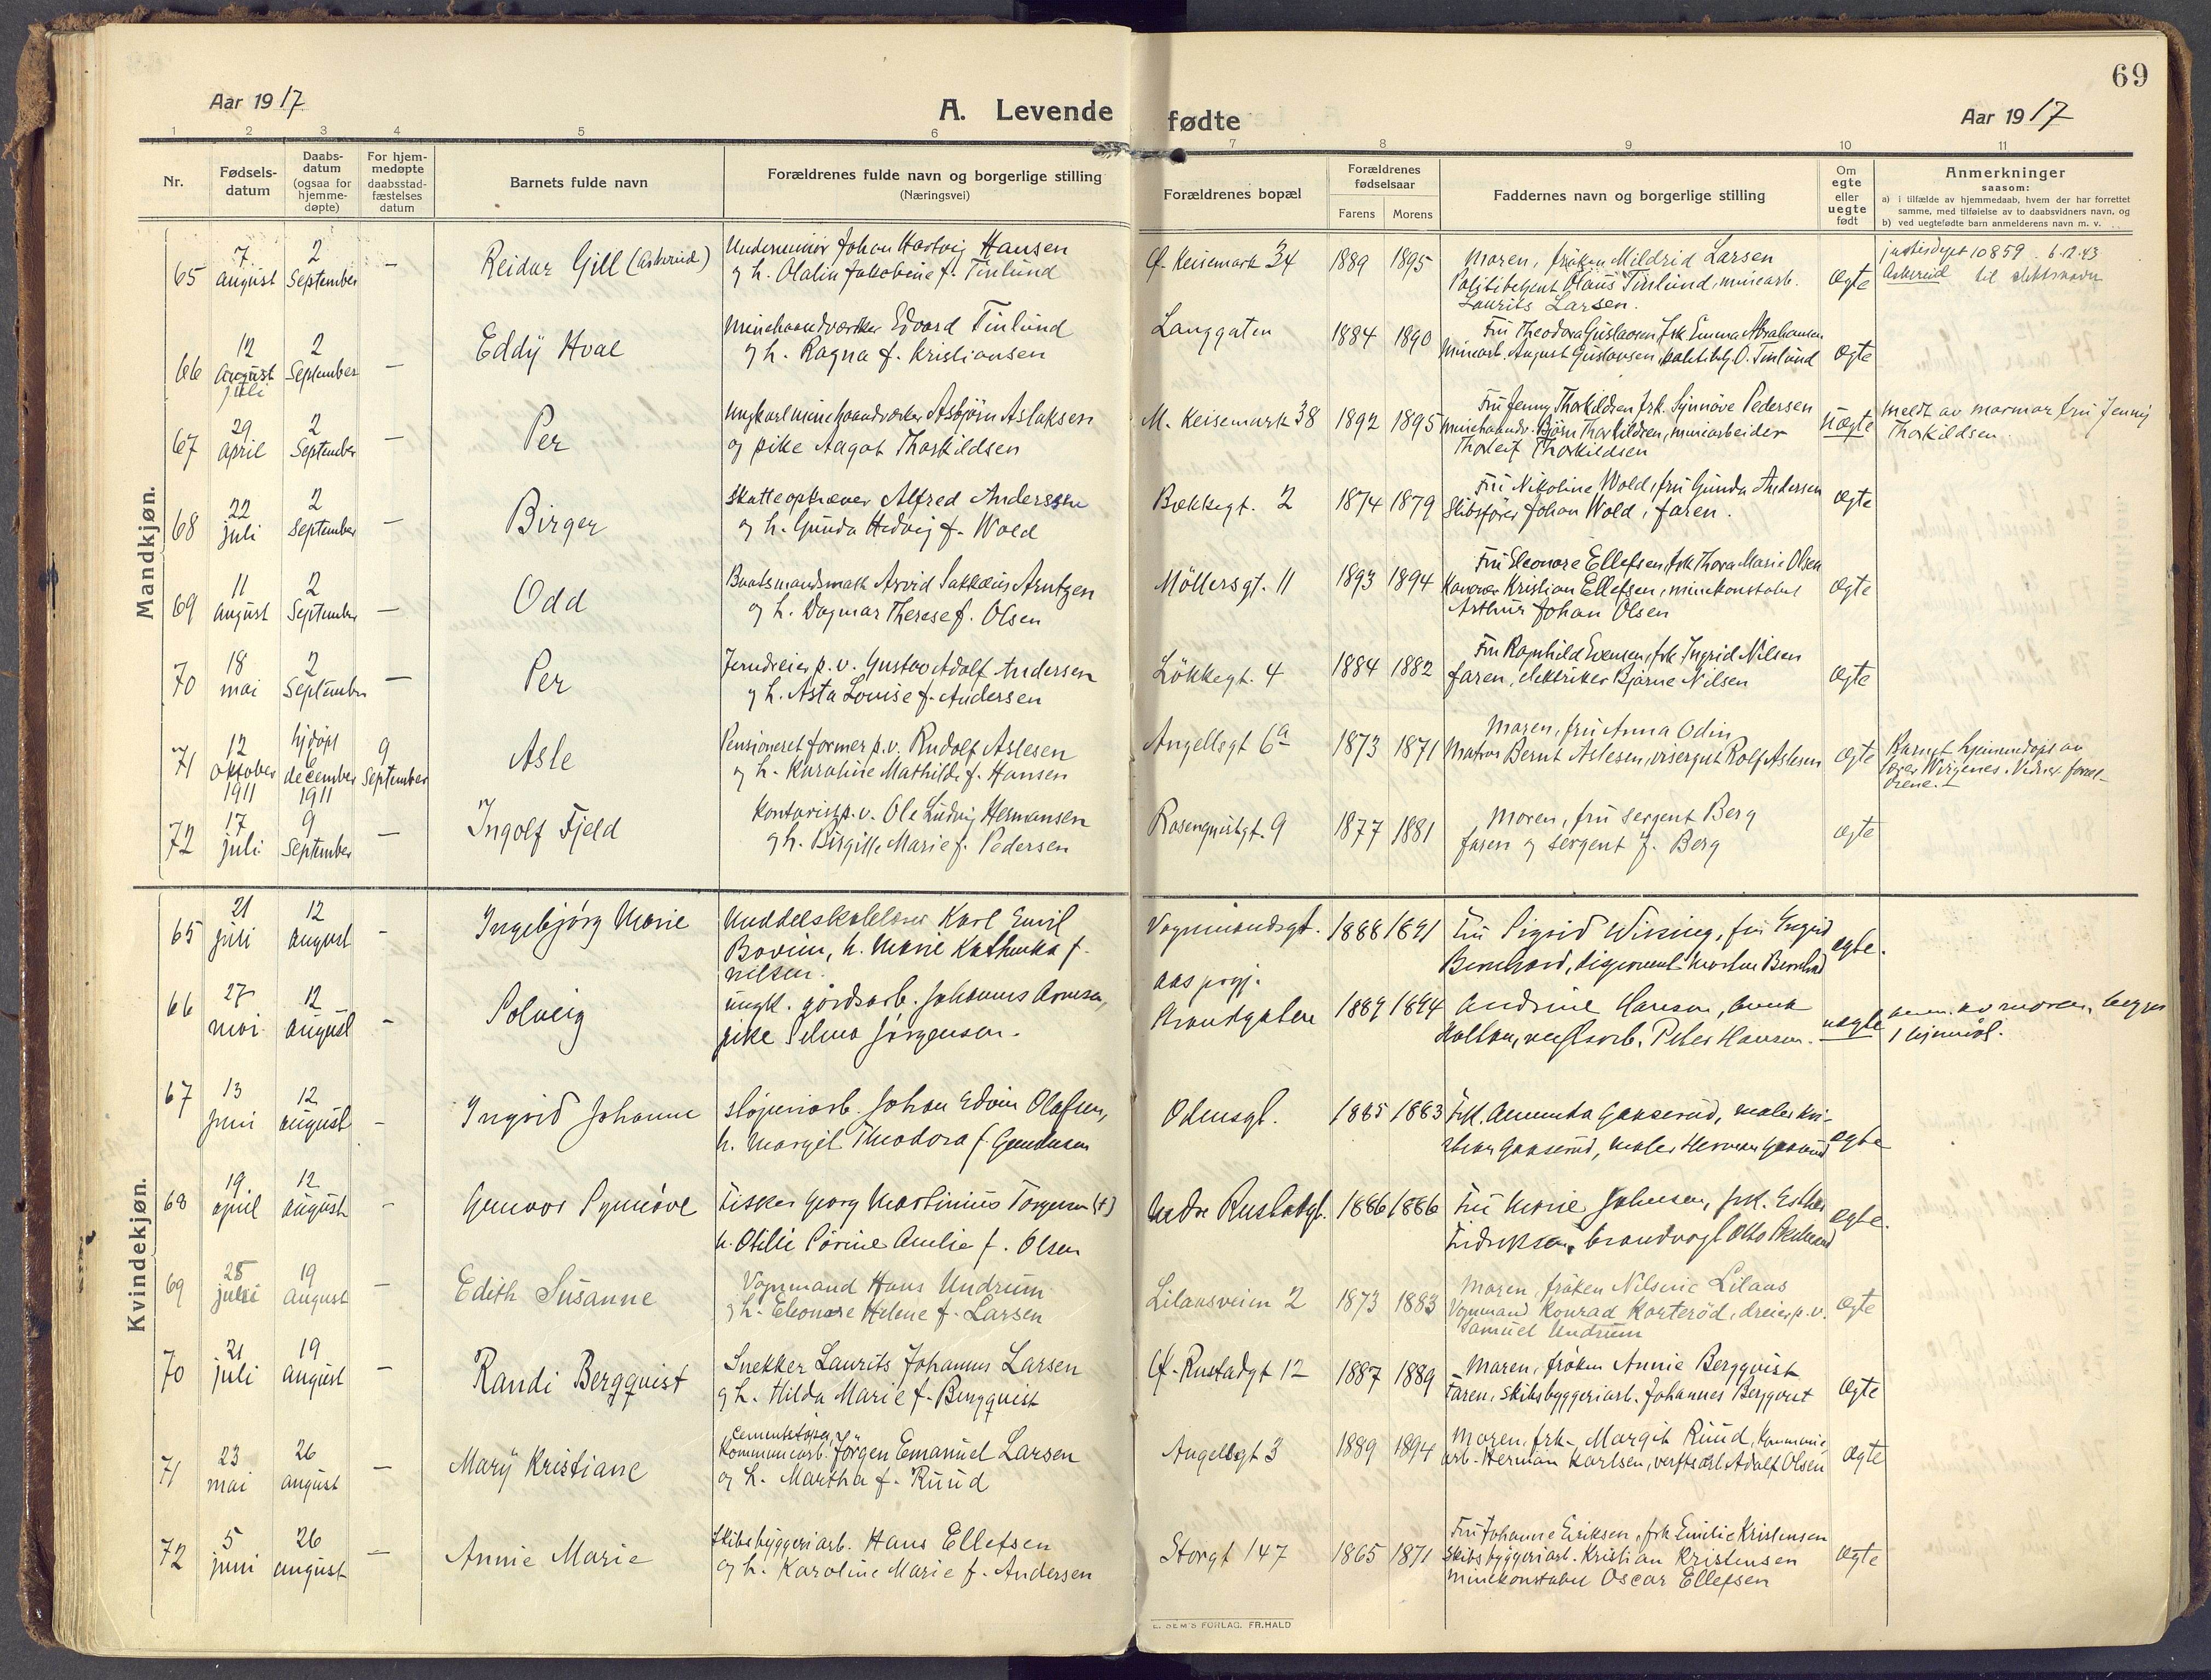 69
Aar 1917
A. Levende fødte
Aar 1917
1 2 3 4 5 6 7 8 9 10 11
Nr.
Fødsels-
datum
Daabs-
datum
(ogsaa for
hjemme-
døpte)
For hjem-
medøpte
daabsstad-
fæstelses
datum
Barnets fulde navn
Forældrenes fulde navn og borgerlige stilling
(Næringsvei)
Forældrenes bopæl
Forældrenes
fødselsaar
Farens Morens
Faddernes navn og borgerlige stilling
Om
egte
eller
uegte
født
Anmerkninger
saasom:
a) i tilfælde av hjemmedaab, hvem der har forrettet
samme, med tilføielse av to daabsvidners navn, og
b) ved uegtefødte barn anmelderens navn m. v.
Mandkjøn.
65 7 august 2 September — Reidar Gill (Askerud)
Underminør Johan Hartvig Hansen
og h. Olalin Jakobine f. Tinlund
Ø. Keisemark 34 1889 1895
Moren, frøken Mildrid Larsen
Politibetjent Olaus Tinlund, minearb.
Laurits Larsen.
Øgte
6.12.43
til slektsnavn
66 12 august juli 2 September — Eddÿ Hval
Minehaandverker Edvard Tinlund
og h. Ragna f. Kristiansen
Langgaten 1884 1890
Fru Theodora Gustavsen, frk Emma Abrahamsen
Minearb. August Gustavsen, politibtj. O. Tinlund
Øgte
67 29 april 2 September — Per
Ungkarl minehaandverker Asbjørn Aslaksen
og pike Aagot Thorkildsen
M. Keisemark 38 1892 1895
Fru Jenny Thorkildsen, frk. Synnøve Pedersen
minehaandv. Bjørn Thorkildsen, minearbeider
Thorleif Thorkildsen
Uægte
Meldt av mormor fru Jenny
Thorkildsen.
68 22 juli 2 September — Birger
Skatteopkræver Alfred Anderssen
og h. Gunda Hedvig f. Wold
Bækkegt. 2 1874 1879
Fru Nikoline Wold, fru Gunda Andersen
Skibsfører Johan Wold, faren.
Øgte
69 11 august 2 September — Odd
Baatsmandsmath Arvid Arntzen
og h. Dagmar Therese f. Olsen
Møllersgt. 11 1893 1894
Fru Eleonore Ellefsen, frk Thora Marie Olsen
Kristian Ellefsen, minekonstabel
Arthur Johan Olsen
Øgte
70 18 mai 2 September — Per
Jerndreier p.v. Gustav Adolf Andersen
og h. Asta Louise f. Andersen
Løkkegt. 4 1884 1882
Fru Ragnhild Evensen, frk Ingrid Nilsen
faren, elektriker Bjarne Nilsen
Øgte
71 12 oktober 1911 hjdøpt 6 december 1911 9 September Asle
Pensioneret former p.v. Rudolf Aslesen
og h. Karoline Mathilde f. Hansen
Angellsgt 6a 1873 1871
Moren, fru Anna Odin
Matros Bernt Aslesen, visergut Rolf Aslesen
Øgte
Barnet hjemmedøpt av
72 17 juli 9 September — Ingolf Fjeld
Kontorist p.v. Ole Ludvig Hermansen
og h. Birgitte Marie f. Pedersen
Rosenquistgt. 9 1877 1881
Moren, fru sergent Berg
faren og sergent J. Berg
Øgte
Kvindekjøn.
65 21 juli 12 august - Ingebjørg Marie
Middelskolelærer Karl Emil
Bovim, h. Marie Kathinka f.
Nilsen.
Vognmandsgt. 1888 1891
Fru Sigrid Wiking, fru Ingrid
Bernhard, disponent Morten Bernhard
egte.
66 27 mai 12 august - Solveig
ungk. gaardsarb. Johannes Arnesen,
pike Selma Jørgensen.
Strandgaten 1889 1894
Andrine Hansen, Anna
verftsarb. Peter Hansen.
uegte
67 13 juni 12 august - Ingrid Johanne
sløperiarb. Johan Edvin Olafsen,
h. Margit Theodora f. Gundersen
Odensgt. 1885 1883
Frk. Amunda Gaaserud, maler Kri-
stian Gaaserud, maler Herman Gaaserud
egte
68 19 april 12 august - Gunvor Synnøve
Fisker Georg Martinius Torgersen (+)
h. Otilie Sørine Amelie f. Olsen
Nedre Rustadgt. 1886 1886
Fru Marie Johnsen, frk. Esther
Fredriksen, brandvagt Otto
egte.
69 28 juli 19 august — Edith Susanne
Vognmand Hans Undrum
og h. Eleonore Helene f. Larsen
Lilaasveien 2 1873 1883
Moren, frøken Nilsine Lilaas
Vognmand Konrad Korterød, dreier p.v.
Samuel Undrum
Øgte
70 21 juli 19 august — Randi Bergquist
Snekker Laurits Johannes Larsen
og h. Hilda Marie f. Bergquist
Ø. Rustadgt 12 1887 1889
Moren, frøken Annie Bergquist
Faren, skibsbyggeriarb. Johannes Bergquist
Øgte
71 23 mai 26 august — Marÿ Kristiane
Cementstøper,
Kommunearb. Jörgen Emanuel Larsen
og h. Martha f. Ruud
Angellsgt 3 1889 1894
Moren, frk. Margit Ruud, Kommune
arb. Herman Karlsen, verftsarb. Adolf Olsen
Øgte
72 5 juni 26 august — Annie Marie
Skibsbyggeriarb. Hans Ellefsen
og h. Karoline Marie f. Andersen
Storgt 147 1865 1871
Fru Johanne Eriksen, frk Emilie Kristensen
Skibsbyggeriarb. Kristian Kristensen
Minekonstabel Oscar Ellefsen
Øgte
E. SEM'S FORLAG. FR.HALD